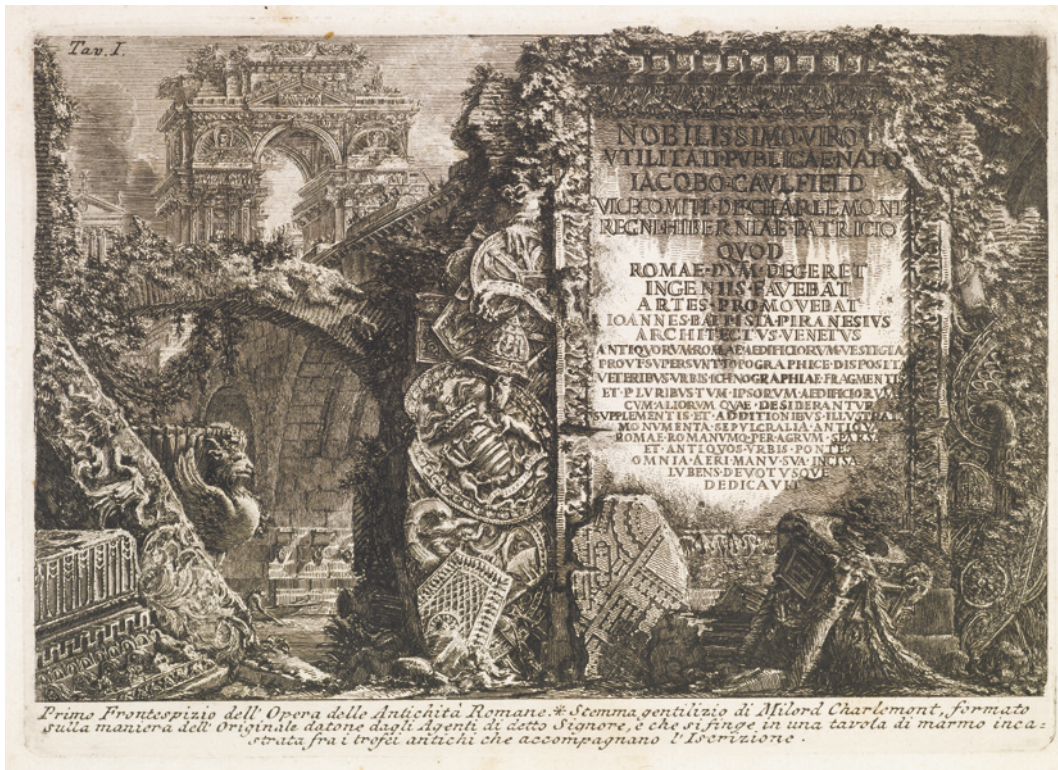 Tav. I.
NOBILISSIMO·VIRO
VTILITATI·PVBLICAE·NATO
IACOBO·CAVLFIELD
VICECOMITI·DE·CHARLEMONT
REGNI·HIBERNIAE·PATRICIO
QVOD
ROMAE·DVM·DEGERET
INGENIIS·FAVEBAT
ARTES·PROMOVEBAT
IOANNES·BAPTISTA·PIRANESIVS
ARCHITECTVS·VENETVS
ANTIQVORVM·ROMAE·AEDIFICIORVM·VESTIGIA
PROVT·SVPERSVNT·TOPOGRAPHICE·DISPOSITA
VETERIBVS·VRBIS·ICHNOGRAPHIAE·FRAGMENTIS
ET·PLVRIBVS·TVM·IPSORVM·AEDIFICIORVM
CVM·ALIORVM·QVAE·DESIDERANTVR
SVPPLEMENTIS·ET·ADDITIONIBVS·ILLVSTRATA
MONVMENTA·SEPVLCRALIA·ANTIQVA
ROMAE·ROMANVMQ·PER·AGRVM·SPARSA
ET·ANTIQVOS·VRBIS·PONTES
OMNIA·AERI·MANV·SVA·INCISA
LVBENS·DEVOTVSQVE
DEDICAVIT
Primo Frontespizio dell' Opera delle Antichità Romane. * Stemma gentilizio di Milord Charlemont, formato
sulla maniera dell' Originale datone dagli Agenti di detto Signore, e che si finge in una tavola di marmo inca=
strata fra i trofei antichi che accompagnano l' Iscrizione.